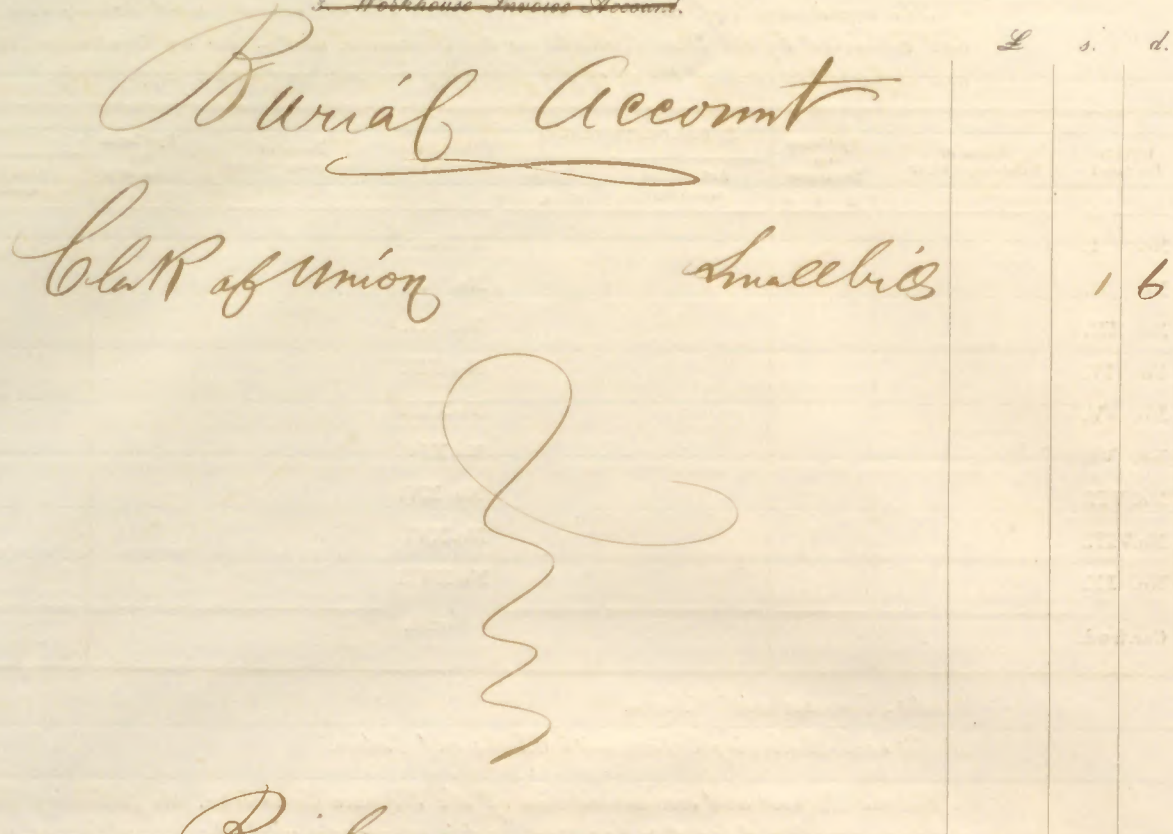 3. Workhouse Invoice Account.
£ s. d.
Burial Account
Clerk of Union Small bill 1 6